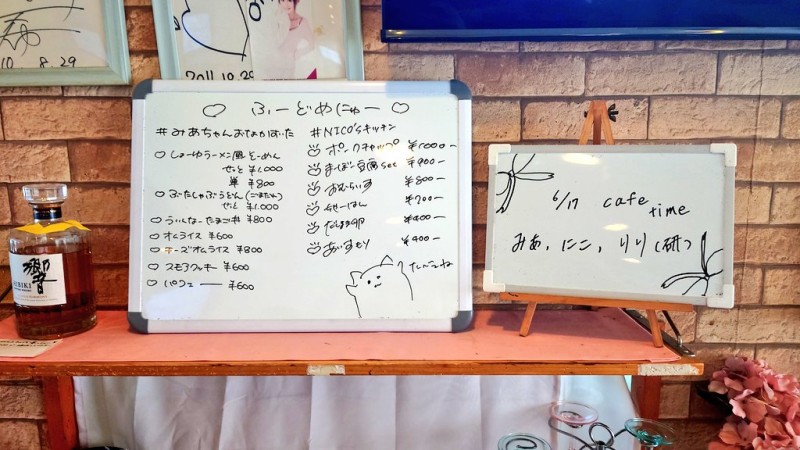 10 8.29
2011.10.29
♡ ふーどめにゅー ♡
#みあちゃんおなかすいた
○ しょーゆラーメン風そーめん
せっと ¥1,000
単 ¥800
○ ぶたしゃぶうどん(ごまだれ)
せっと ¥1,000
○ ういんなーたまご丼 ¥800
○ オムライス ¥600
○ チーズオムライス ¥800
○ スモアクッキー ¥600
○ パフェ ― ¥600
#NICO'sキッチン
ポークチャップ ¥1000-
まーぼー豆腐set ¥900-
おむらいす ¥800-
¥700-
¥400-
あいすもり ¥400-
たべてね
響
HIBIKI
6/17 cafe
time
みあ、にこ、りり(研)